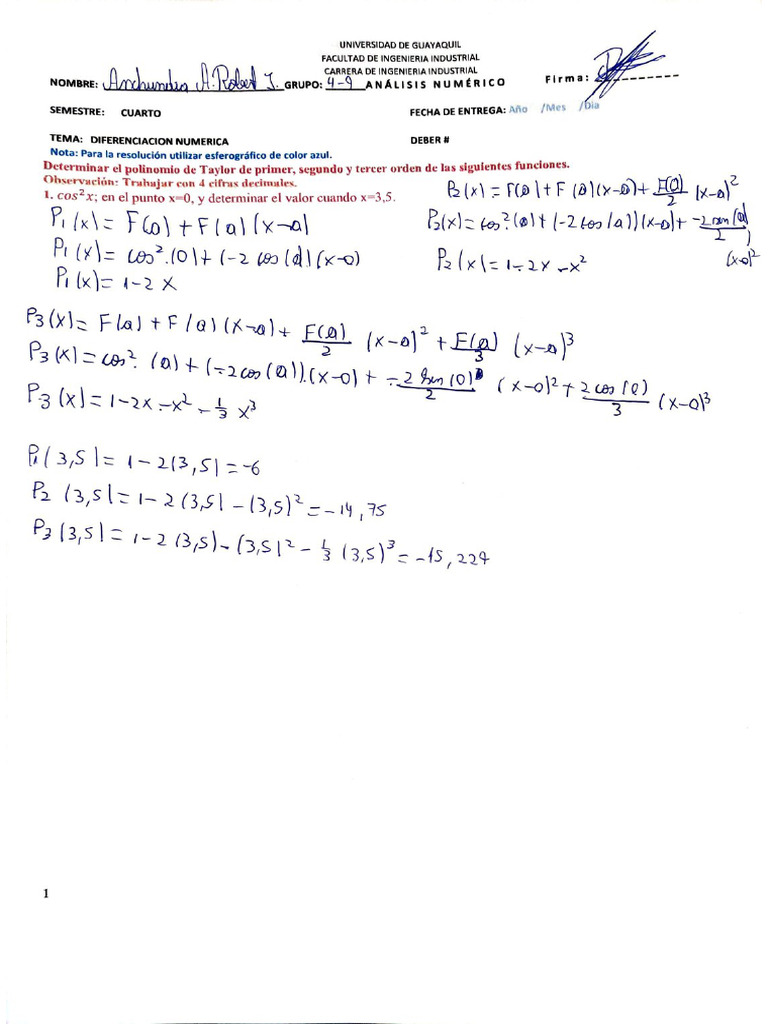 UNIVERSIDAD DE GUAYAQUIL
FACULTAD DE INGENIERIA INDUSTRIAL
CARRERA DE INGENIERIA INDUSTRIAL
NOMBRE: Anchundia A. Robert J. GRUPO: 4-9 ANÁLISIS NUMÉRICO Firma:
SEMESTRE: CUARTO FECHA DE ENTREGA: Año /Mes /Dia
TEMA: DIFERENCIACION NUMERICA DEBER #
Nota: Para la resolución utilizar esferográfico de color azul.
Determinar el polinomio de Taylor de primer, segundo y tercer orden de las siguientes funciones.
Observación: Trabajar con 4 cifras decimales.
1. cos² x; en el punto x=0, y determinar el valor cuando x=3,5.
P₁(x) = F(a) + F(a)(x-a)
P₁(x) = cos².(0) + (-2 cos(a)(x-0)
P₁(x) = 1-2x
P₂(x) = F(a) + F(a)(x-a) + F(a)/2 (x-a)²
P₂(x) = cos²(a) + (-2cos(a))(x-a) + -2sen(a)/2 (x-a)²
P₂(x) = 1-2x-x²
P₃(x) = F(a) + F(a)(x-a) + F(a)/2 (x-a)² + F(a)/3 (x-a)³
P₃(x) = cos². (a) + (-2cos(a)).(x-0) + -2sen(0)/2 (x-0)² + 2cos(0)/3 (x-0)³
P₃(x) = 1-2x-x²-1/3 x³
P₁(3,5) = 1-2(3,5) = -6
P₂(3,5) = 1-2(3,5)-(3,5)² = -14,75
P₃(3,5) = 1-2(3,5)-(3,5)²-1/3(3,5)³ = -15,224
1